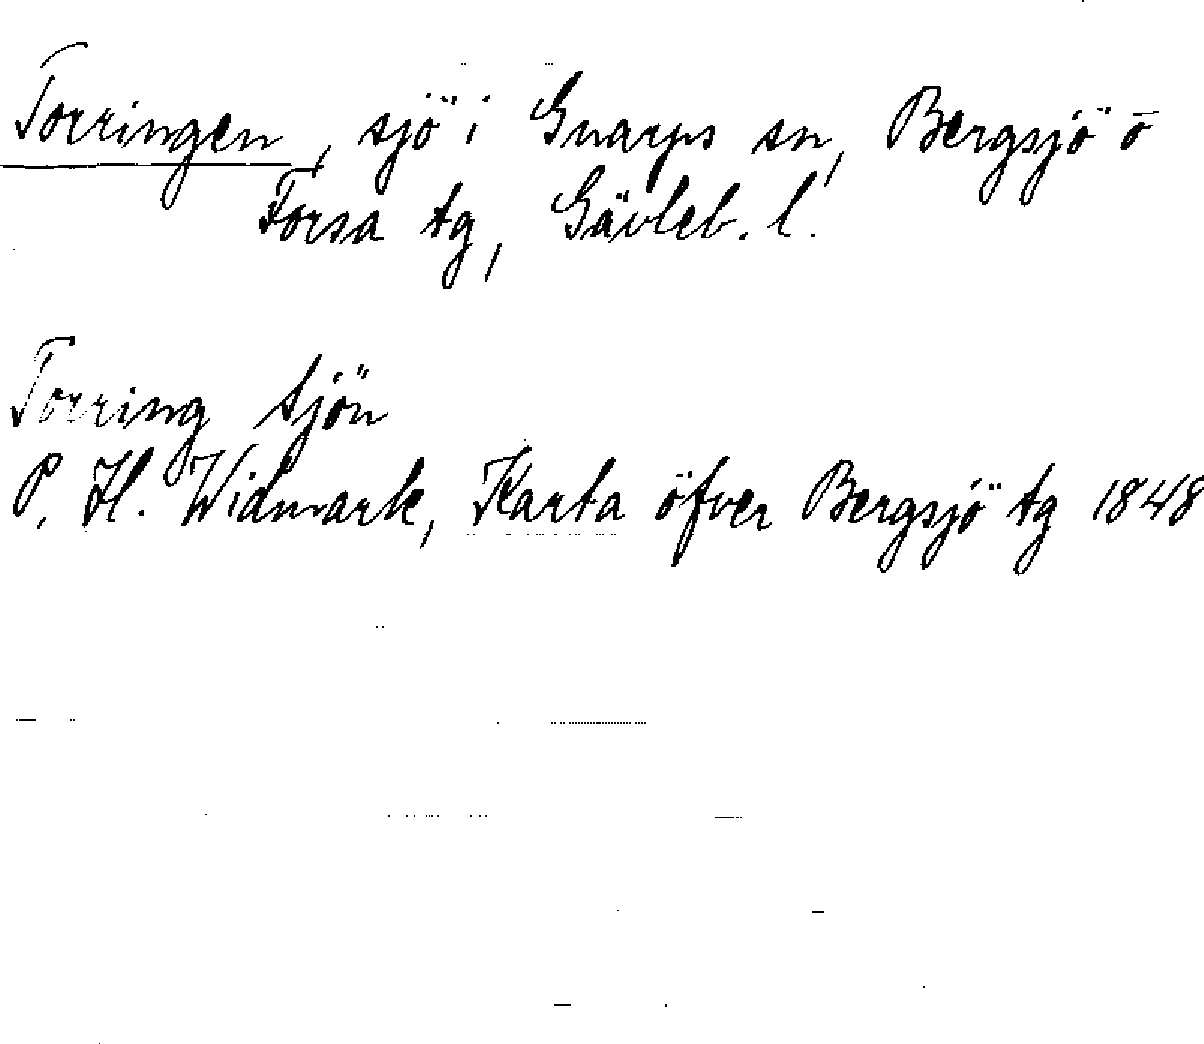 Torringen, sjö i Gnarps sn, Bergsjö o
Forsa tg, Gävleb. l.
Torring Sjön
P. H. Widmark, Karta öfver Bergsjö tg 1848